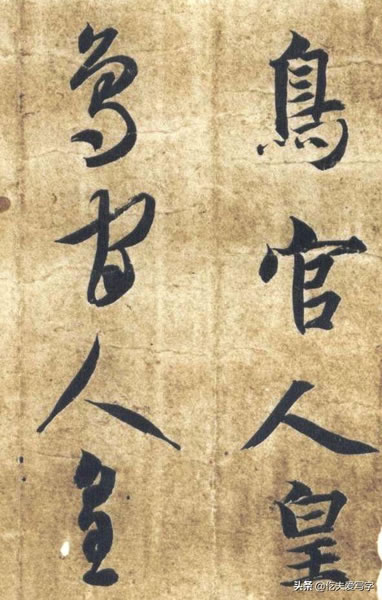 鳥官人皇
鳥官人皇
头条 @忆夫爱写字